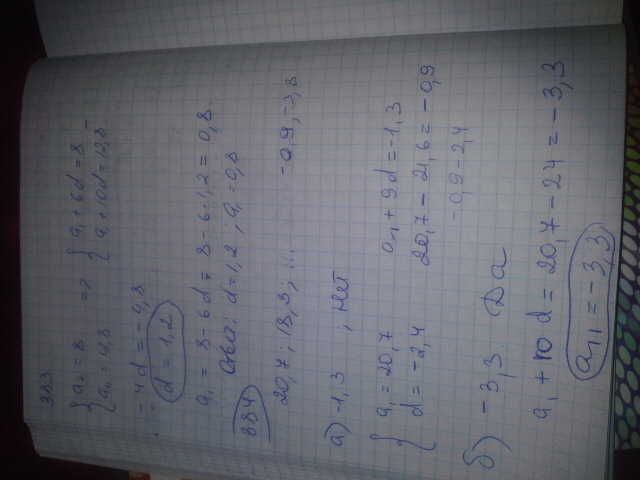 383
{ a₇ = 8 => { a₁ + 6d = 8 -
{ a₁₁ = 12,8 { a₁ + 10d = 12,8
- 4d = - 4,8
d = 1,2
a₁ = 8 - 6d = 8 - 6·1,2 = 0,8.
Ответ: d = 1,2 ; a₁ = 0,8
384
20,7 ; 18,3 ; ... -0,9, -3,3
а) -1,3 ; нет
{ a₁ = 20,7 a₁ + 9d = -1,3
{ d = -2,4 20,7 - 21,6 = -0,9
-0,9 - 2,4
б) -3,3 Да
a₁ + 10d = 20,7 - 24 = -3,3
a₁₁ = -3,3